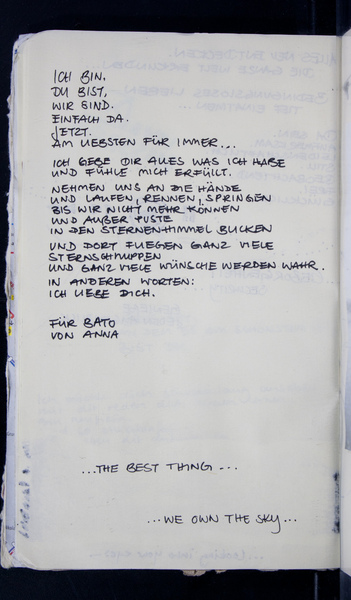 ICH BIN.
DU BIST,
WIR SIND.
EINFACH DA.
JETZT.
AM LIEBSTEN FÜR IMMER...
ICH GEBE DIR ALLES WAS ICH HABE
UND FÜHLE MICH ERFÜLLT.
NEHMEN UNS AN DIE HÄNDE
UND LAUFEN, RENNEN, SPRINGEN
BIS WIR NICHT MEHR KÖNNEN
UND AUßER PUSTE
IN DEN STERNENHIMMEL BLICKEN
UND DORT FLIEGEN GANZ VIELE
STERNSCHNUPPEN
UND GANZ VIELE WÜNSCHE WERDEN WAHR.
IN ANDEREN WORTEN:
ICH LIEBE DICH.
FÜR BATO
VON ANNA
...THE BEST THING...
...WE OWN THE SKY...